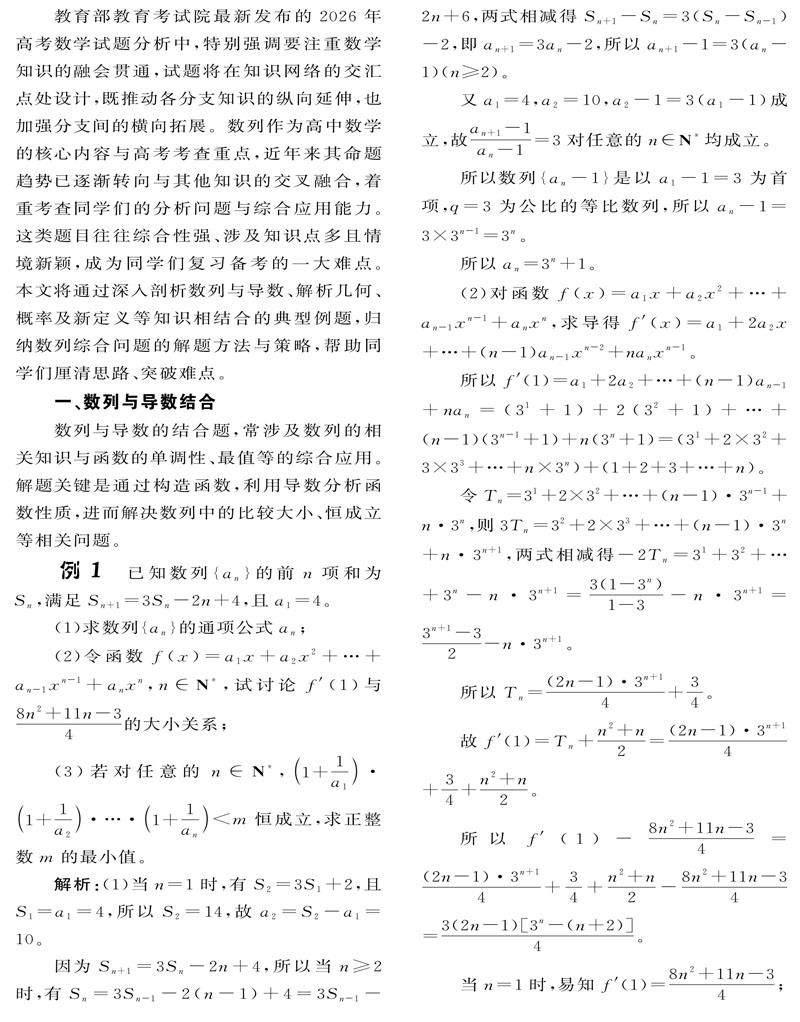 教育部教育考试院最新发布的 2026 年
高考数学试题分析中,特别强调要注重数学
知识的融会贯通,试题将在知识网络的交汇
点处设计,既推动各分支知识的纵向延伸,也
加强分支间的横向拓展。数列作为高中数学
的核心内容与高考考查重点,近年来其命题
趋势已逐渐转向与其他知识的交叉融合,着
重考查同学们的分析问题与综合应用能力。
这类题目往往综合性强、涉及知识点多且情
境新颖,成为同学们复习备考的一大难点。
本文将通过深入剖析数列与导数、解析几何、
概率及新定义等知识相结合的典型例题,归
纳数列综合问题的解题方法与策略,帮助同
学们厘清思路、突破难点。
一、数列与导数结合
数列与导数的结合题,常涉及数列的相
关知识与函数的单调性、最值等的综合应用。
解题关键是通过构造函数,利用导数分析函
数性质,进而解决数列中的比较大小、恒成立
等相关问题。
例 1 已知数列{aₙ}的前 n 项和为
Sₙ,满足 Sₙ₊₁=3Sₙ-2n+4,且 a₁=4。
(1)求数列{aₙ}的通项公式 aₙ;
(2)令函数 f(x)=a₁x+a₂x²+…+
aₙ₋₁xⁿ⁻¹+aₙxⁿ,n∈N*,试讨论 f′(1)与
(8n²+11n-3)/4 的大小关系;
(3)若对任意的 n∈N*,(1+1/a₁)·
(1+1/a₂)·…·(1+1/aₙ)<m 恒成立,求正整
数 m 的最小值。
解析:(1)当 n=1 时,有 S₂=3S₁+2,且
S₁=a₁=4,所以 S₂=14,故 a₂=S₂-a₁=
10。
因为 Sₙ₊₁=3Sₙ-2n+4,所以当 n≥2
时,有 Sₙ=3Sₙ₋₁-2(n-1)+4=3Sₙ₋₁-
2n+6,两式相减得 Sₙ₊₁-Sₙ=3(Sₙ-Sₙ₋₁)
-2,即 aₙ₊₁=3aₙ-2,所以 aₙ₊₁-1=3(aₙ-
1)(n≥2)。
又 a₁=4,a₂=10,a₂-1=3(a₁-1)成
立,故(aₙ₊₁-1)/(aₙ-1)=3 对任意的 n∈N*均成立。
所以数列{aₙ-1}是以 a₁-1=3 为首
项,q=3 为公比的等比数列,所以 aₙ-1=
3×3ⁿ⁻¹=3ⁿ。
所以 aₙ=3ⁿ+1。
(2)对函数 f(x)=a₁x+a₂x²+…+
aₙ₋₁xⁿ⁻¹+aₙxⁿ,求导得 f′(x)=a₁+2a₂x
+…+(n-1)aₙ₋₁xⁿ⁻²+naₙxⁿ⁻¹。
所以 f′(1)=a₁+2a₂+…+(n-1)aₙ₋₁
+naₙ=(3¹+1)+2(3²+1)+…+
(n-1)(3ⁿ⁻¹+1)+n(3ⁿ+1)=(3¹+2×3²+
3×3³+…+n×3ⁿ)+(1+2+3+…+n)。
令 Tₙ=3¹+2×3²+…+(n-1)·3ⁿ⁻¹+
n·3ⁿ,则 3Tₙ=3²+2×3³+…+(n-1)·3ⁿ
+n·3ⁿ⁺¹,两式相减得-2Tₙ=3¹+3²+…
+3ⁿ-n·3ⁿ⁺¹=3(1-3ⁿ)/(1-3)-n·3ⁿ⁺¹=
(3ⁿ⁺¹-3)/2-n·3ⁿ⁺¹。
所以 Tₙ=(2n-1)·3ⁿ⁺¹/4+3/4。
故 f′(1)=Tₙ+(n²+n)/2=(2n-1)·3ⁿ⁺¹/4
+3/4+(n²+n)/2。
所以 f′(1)-(8n²+11n-3)/4=
(2n-1)·3ⁿ⁺¹/4+3/4+(n²+n)/2-(8n²+11n-3)/4
=3(2n-1)[3ⁿ-(n+2)]/4。
当 n=1 时,易知 f′(1)=(8n²+11n-3)/4;